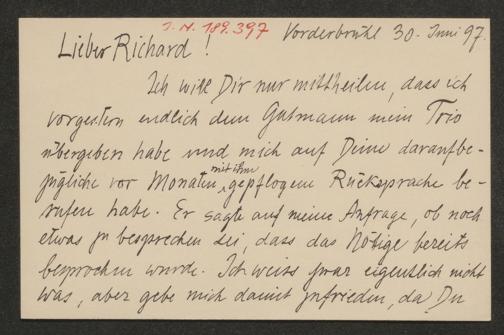 I.N. 189.397
Vorderbrühl 30. Juni 97.
Lieber Richard!
Ich will Dir nur mittheilen, dass ich
vorgestern endlich dem Gutmann mein Trio
übergeben habe und mich auf Deine daraufbe-
zügliche vor Monaten mit ihm gepflogene Rücksprache be-
rufen habe. Er sagte auf meine Anfrage, ob noch
etwas zu besprechen sei, dass das Nötige bereits
besprochen wurde. Ich weiss zwar eigentlich nicht
was, aber gebe mich damit zufrieden, da Du